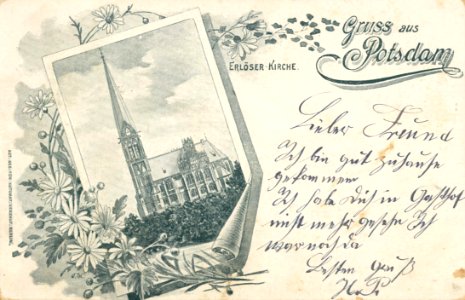 Gruss aus
Potsdam
ERLÖSER-KIRCHE.
Lieber Freund
Ich bin gut zuhause
gekommen
Ich habe Dich in Gasthof
nicht mehr gesehn Ich
war noch da
Besten Gruß